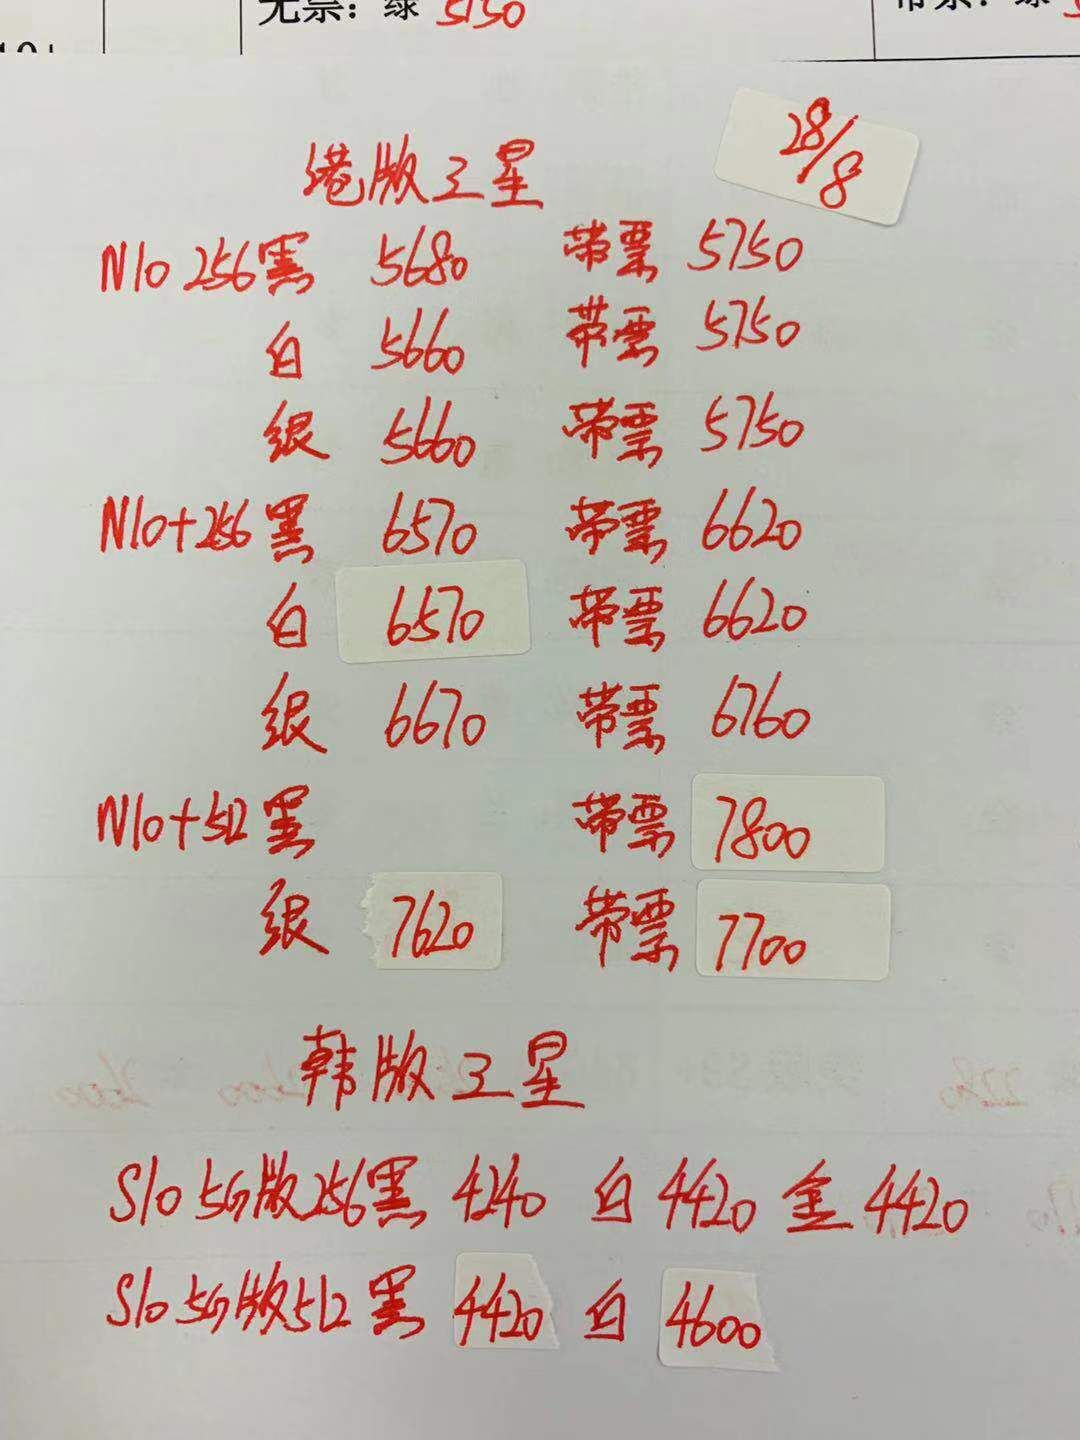 无票：绿 5150 带票：绿
28/8
港版三星
N10 256黑 5680 带票 5750
白 5660 带票 5750
银 5660 带票 5750
N10+256黑 6570 带票 6620
白 6570 带票 6620
银 6670 带票 6760
N10+512黑 带票 7800
银 7620 带票 7700
韩版三星
S10 5G版256黑 4240 白 4420 金 4420
S10 5G版512 黑 4420 白 4600